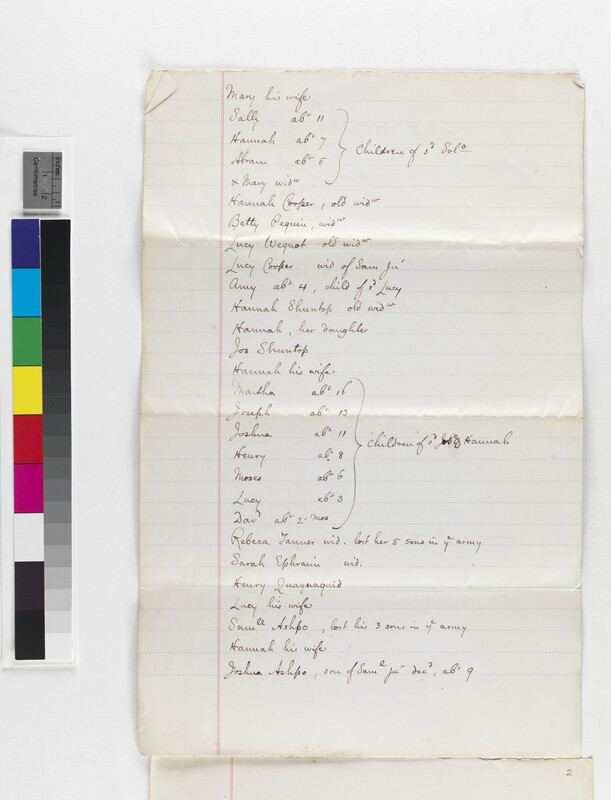 Mary his wife
Sally abt 11
Hannah abt 7
Abram abt 5
Children of sd Solo
& Mary widw
Hannah Cooper, old widw
Betty Pequin, widw
Lucy Wequot old widw
Lucy Cooper wid of Sam Jur
Amy abt 4, child of sd Lucy
Hannah Shuntop old widw
Hannah, her daughter
Jos Shuntop
Hannah his wife
Martha abt 16
Joseph abt 13
Joshua abt 11
Henry abt 8
Moses abt 6
Lucy abt 3
Davd abt 2 mos
Children of sd Jos & Hannah
Rebeca Tanner wid. lost her 5 sons in ye army
Sarah Ephraim wid.
Henry Quaquaquid
Lucy his wife
Samll Ashpo, lost his 3 sons in ye army
Hannah his wife
Joshua Ashpo, son of Saml jur decd, abt 9
2
Centimetres
Inches